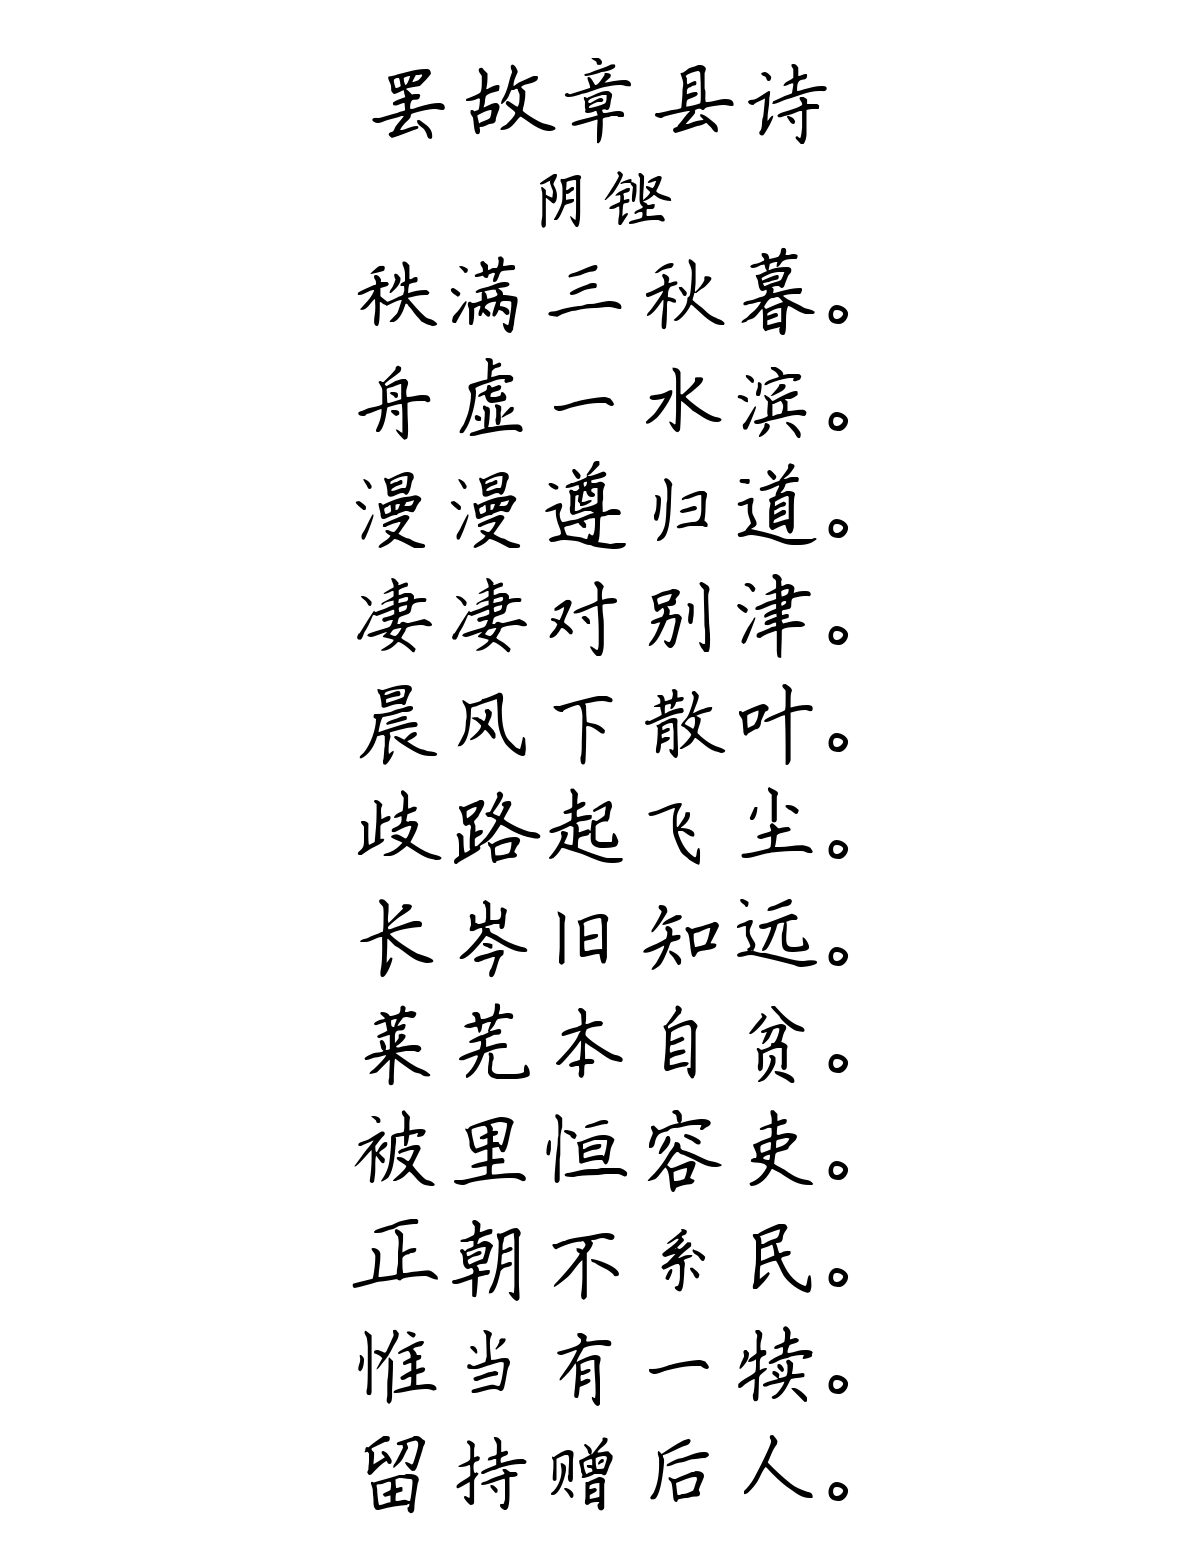 罢故章县诗
阴铿
秩满三秋暮。
舟虚一水滨。
漫漫遵归道。
凄凄对别津。
晨风下散叶。
歧路起飞尘。
长岑旧知远。
莱芜本自贫。
被里恒容吏。
正朝不系民。
惟当有一犊。
留持赠后人。